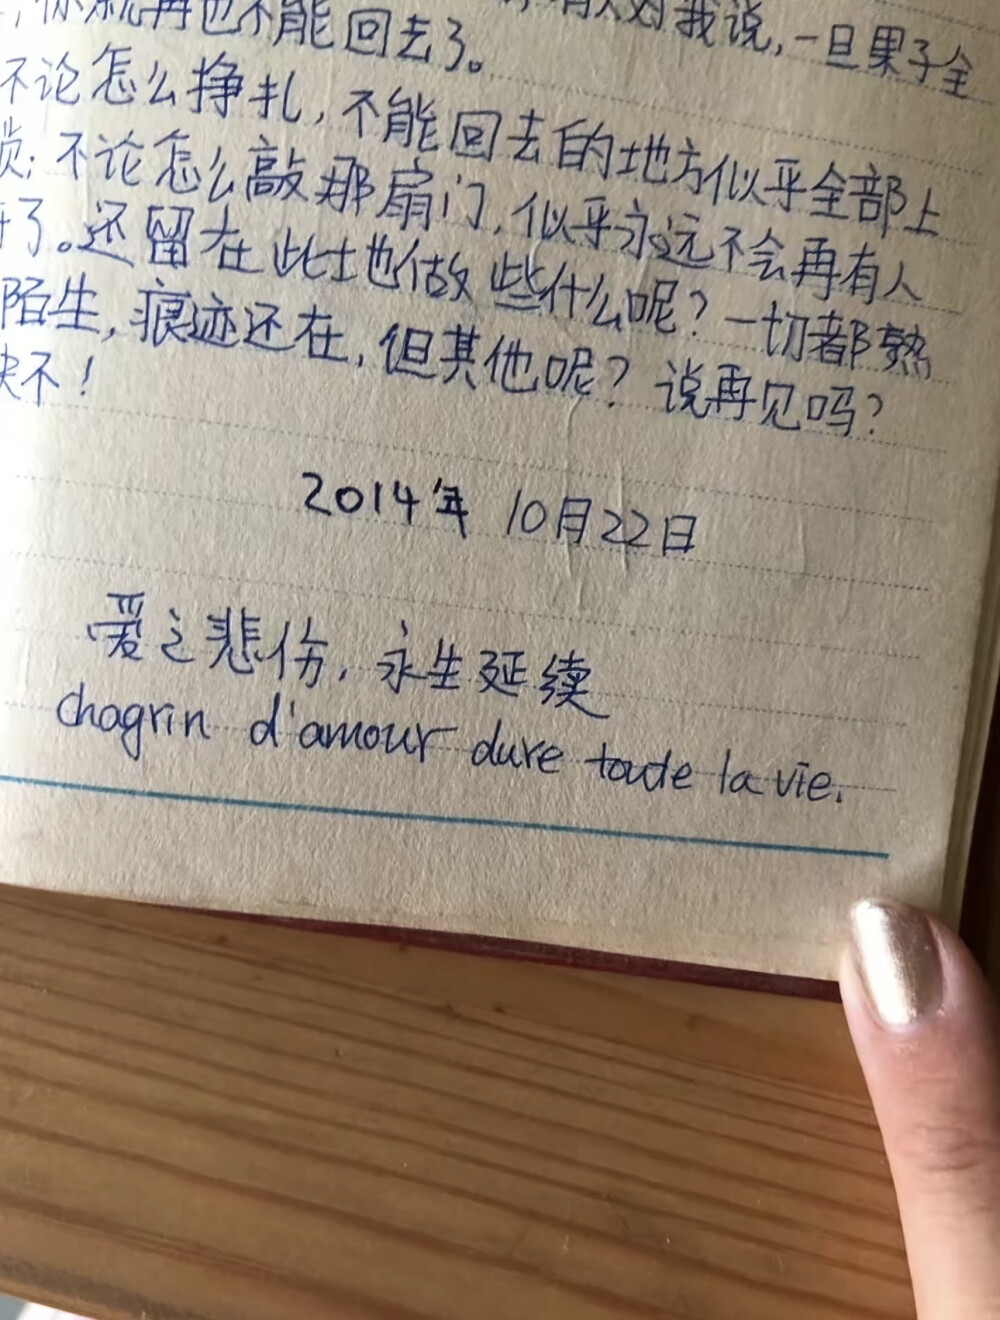 你就再也不能回去了。 有人对我说,一旦果子全
不论怎么挣扎,不能回去的地方似乎全部上
锁;不论怎么敲那扇门,似乎永远不会再有人
开了。还留在此地做些什么呢?一切都熟
陌生,痕迹还在,但其他呢?说再见吗?
不!
2014年 10月22日
爱之悲伤,永生延续
chagrin d'amour dure toute la vie.